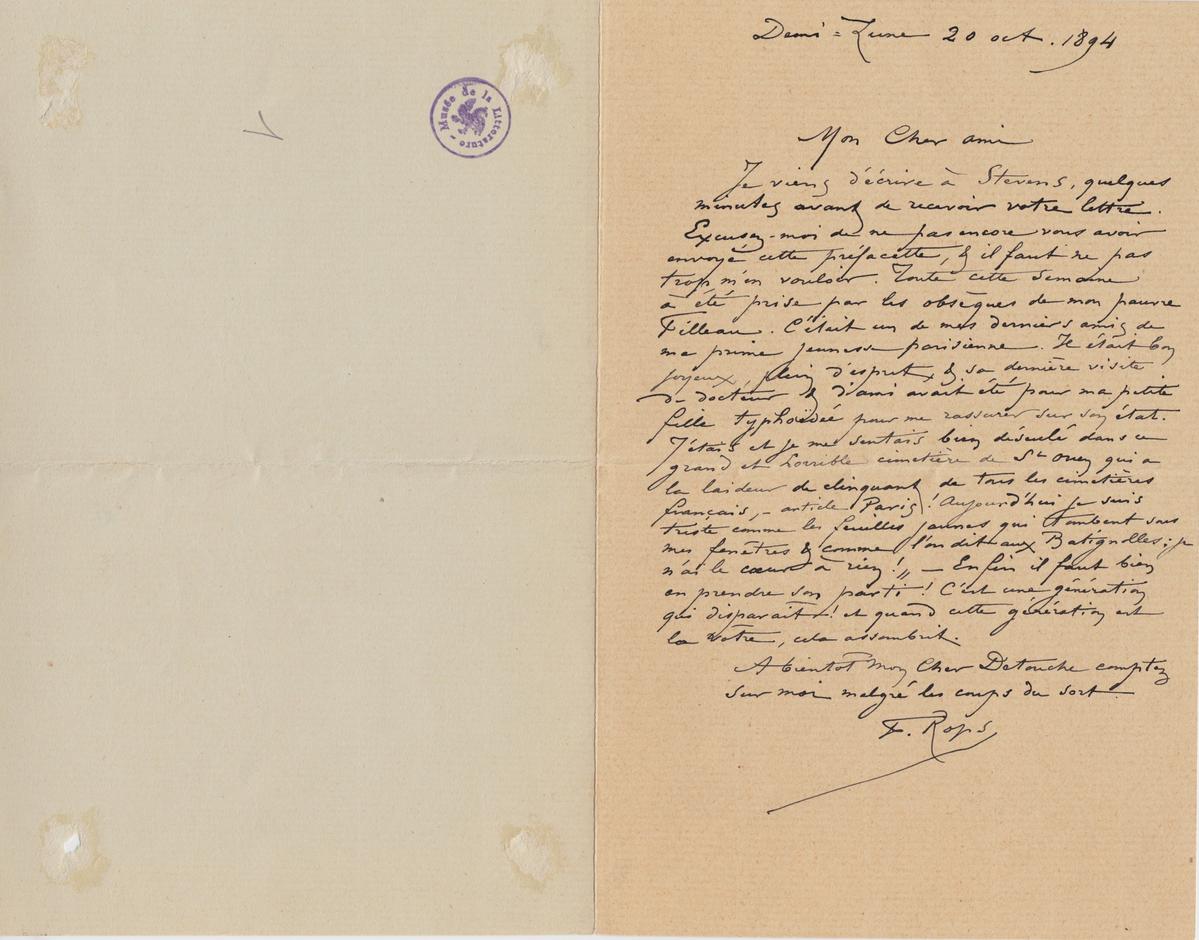 Musée de la Littérature
Demi=Lune 20 oct. 1894
Mon Cher ami
Je viens d'écrire à Stevens, quelques
minutes avant de recevoir votre lettre.
Excusez-moi de ne pas encore vous avoir
envoyé cette préfacette, & il faut ne pas
trop m'en vouloir. Toute cette semaine
a été prise par les obsèques de mon pauvre
Filleau. C'était un de mes derniers amis de
ma prime jeunesse parisienne. Il était bon
joyeux, plein d'esprit, & sa dernière visite
de docteur & d'ami avait été pour ma petite
fille typhoïdée pour me rassurer sur son état.
J'étais et je me sentais bien désolé dans ce
grand et horrible cimetière de St Ouen qui a
la laideur de clinquant de tous les cimetières
français, – article Paris! Aujourd'hui je suis
triste comme les feuilles jaunes qui tombent sous
mes fenêtres & comme l'on dit aux Batignolles; je
n'ai le cœur à rien!„ – Enfin il faut bien
en prendre son parti! C'est une génération
qui disparait! et quand cette génération est
la vôtre, cela assombrit.
A bientot Mon Cher Detouche comptez
sur moi malgré les coups du sort.
F. Rops